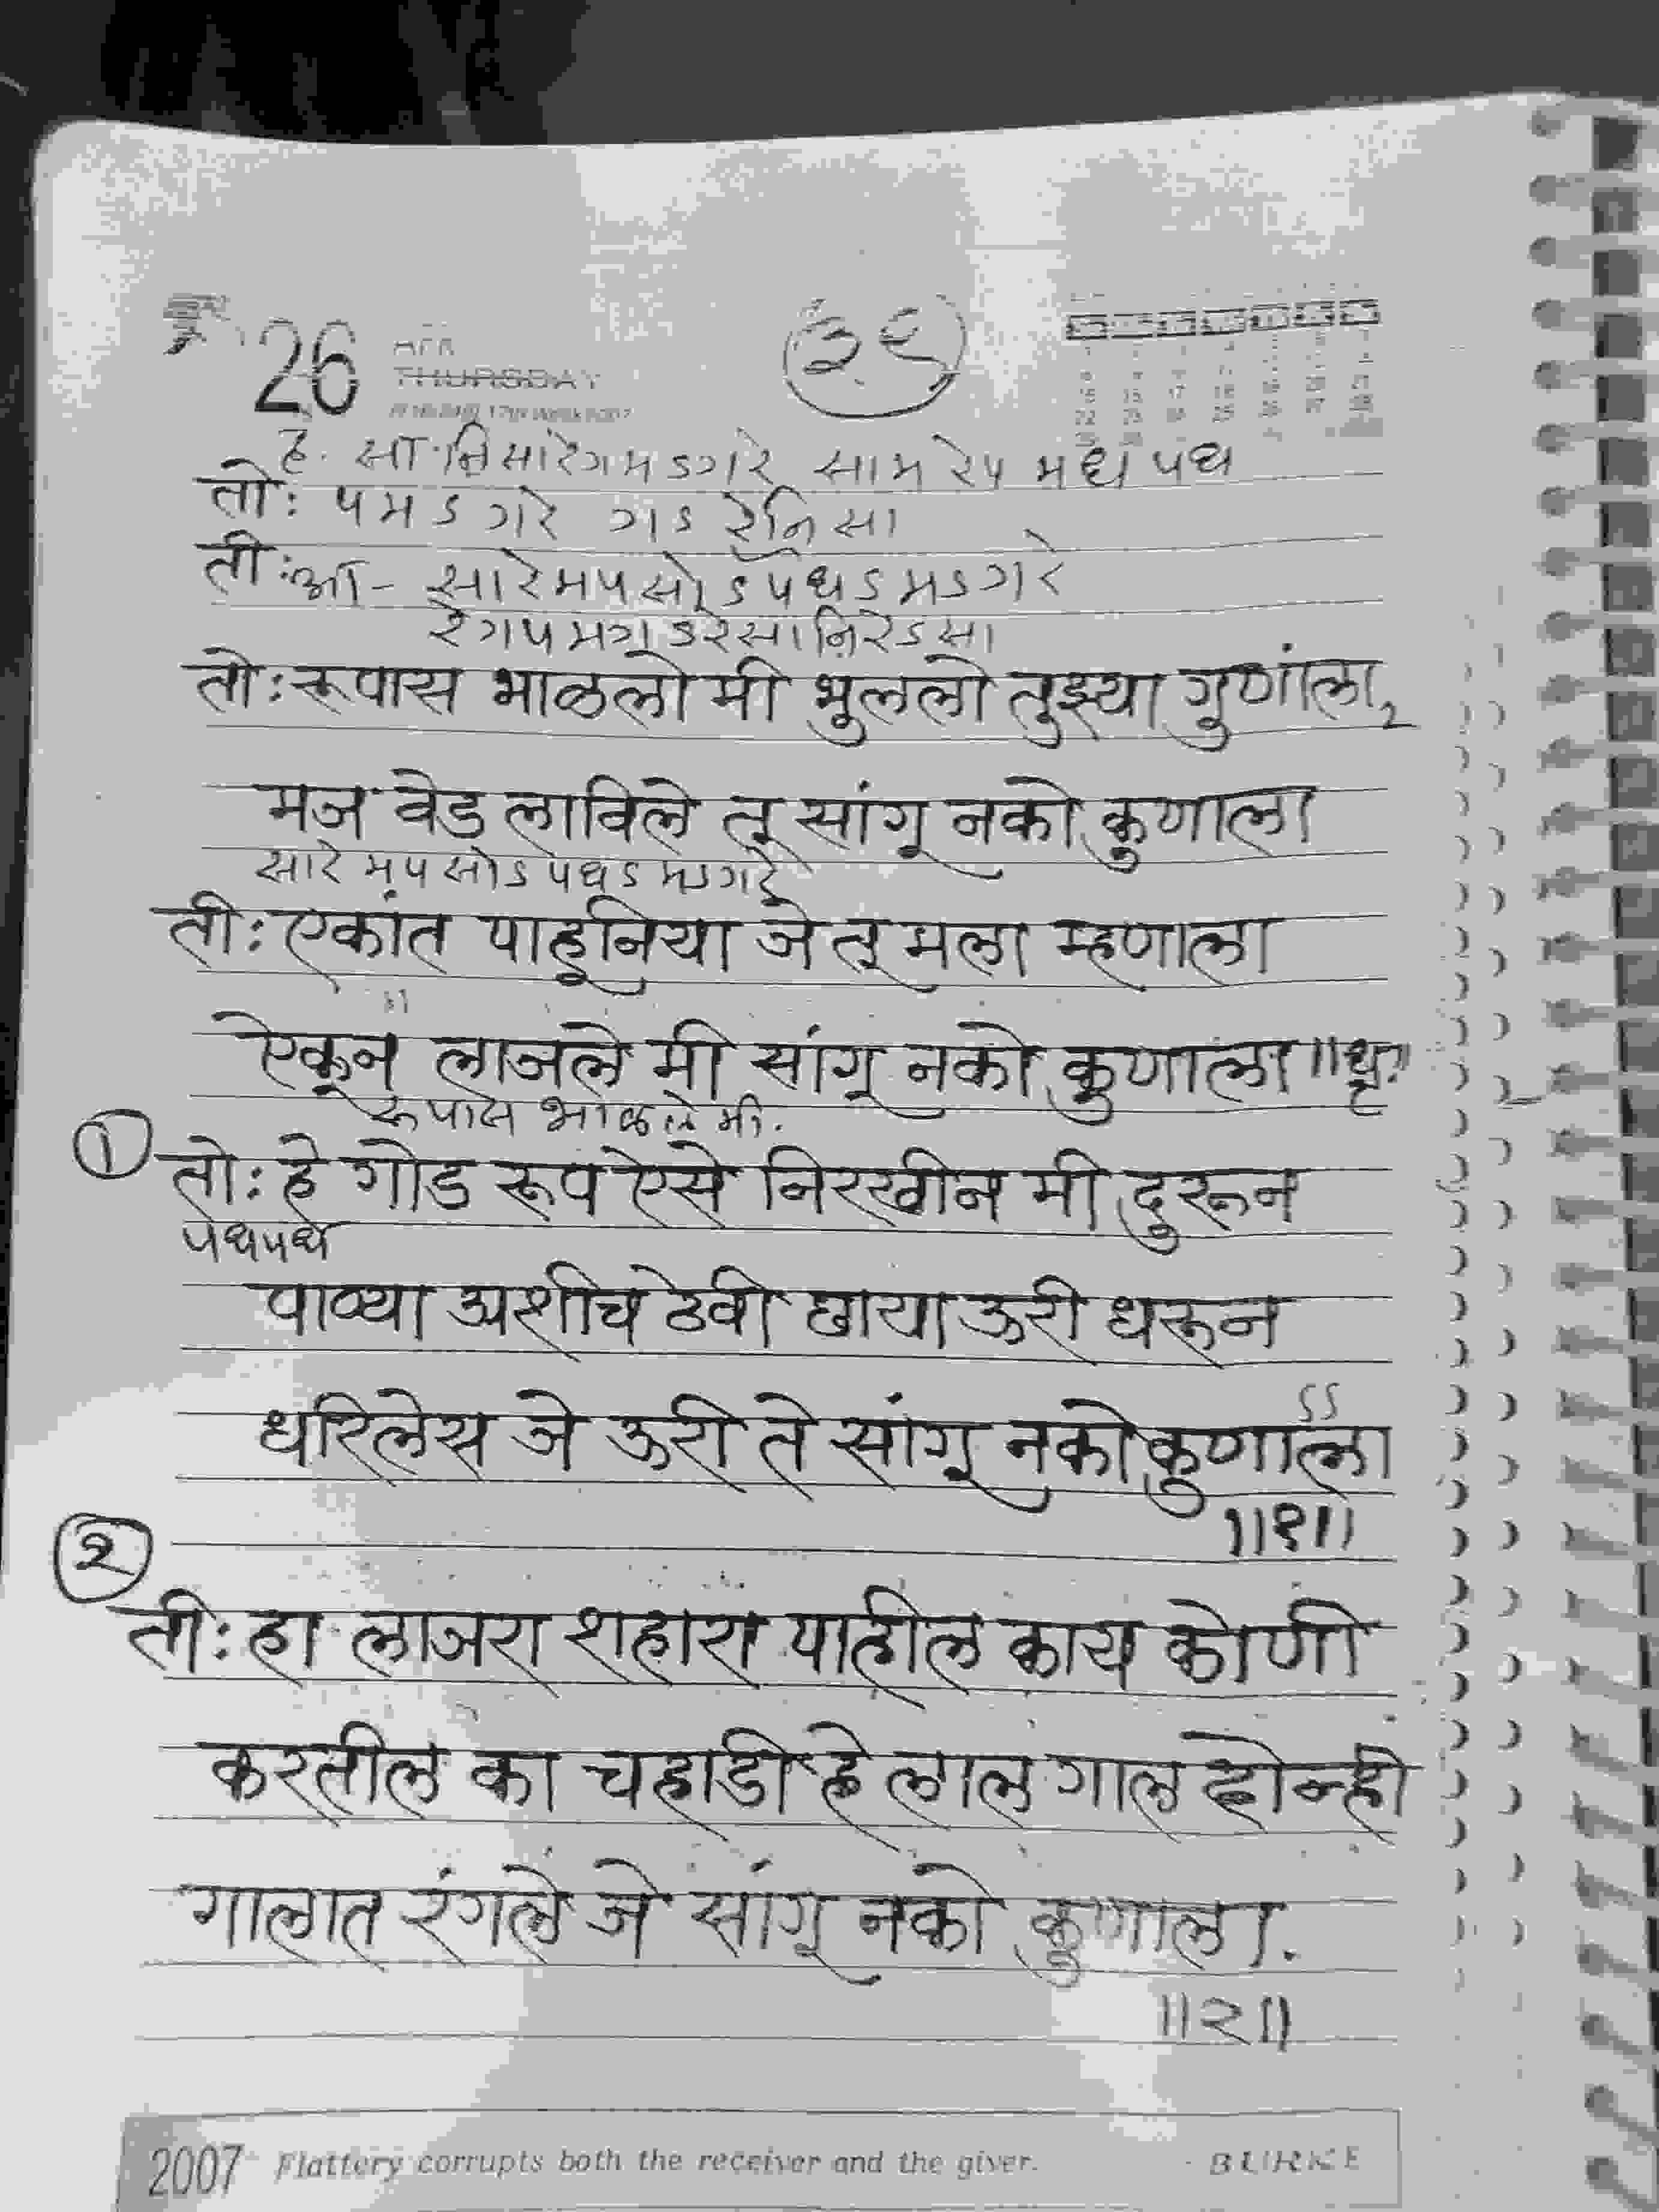 26 THURSDAY ३६
ह. सा नि सा रे ग म ऽ ग रे सा म रे प म ध प ध
तो: प म ऽ ग रे ग ऽ रे नि सा
ती: आ - सा रे म प सां ऽ प ध ऽ म ऽ ग रे
रे ग प म ग ऽ रे सा नि रे ऽ सा
तो: रूपास भाळलो मी भुललो तुझ्या गुणांला,
मज वेड लाविले तू सांगू नको कुणाला
सा रे म प सां ऽ प ध ऽ म ऽ ग रे
ती: एकांत पाहूनिया जे तू मला म्हणाला
ऐकून लाजले मी सांगू नको कुणाला ॥धृ॥
रूपास भाळले मी.
① तो: हे गोड रूप ऐसे निरखीन मी दुरून
प ध प ध
पाण्या अशीच ठेवी छाया ऊरी धरून
धरिलेस जे ऊरी ते सांगू नको कुणाला
ऽऽ
॥१॥
② ती: हा लाजरा शहारा पाहील काय कोणी
करतील का चहाडी हे लाल गाल दोन्ही
गालात रंगले जे सांगू नको कुणाला.
॥२॥
2007 Flattery corrupts both the receiver and the giver. - BURKE